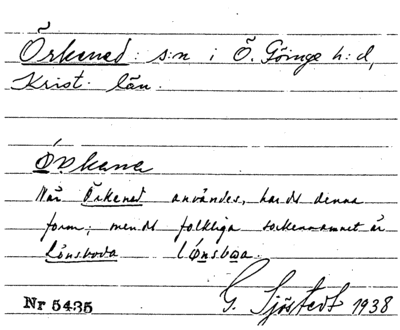 Örkened s:n i Ö. Göinge h:d,
Krist. län.
Ørkana
När Örkened användes, har det denna
form; men det folkliga sockennamnet är
Lönsboda lønsboa.
G. Sjöstedt 1938
Nr 5435